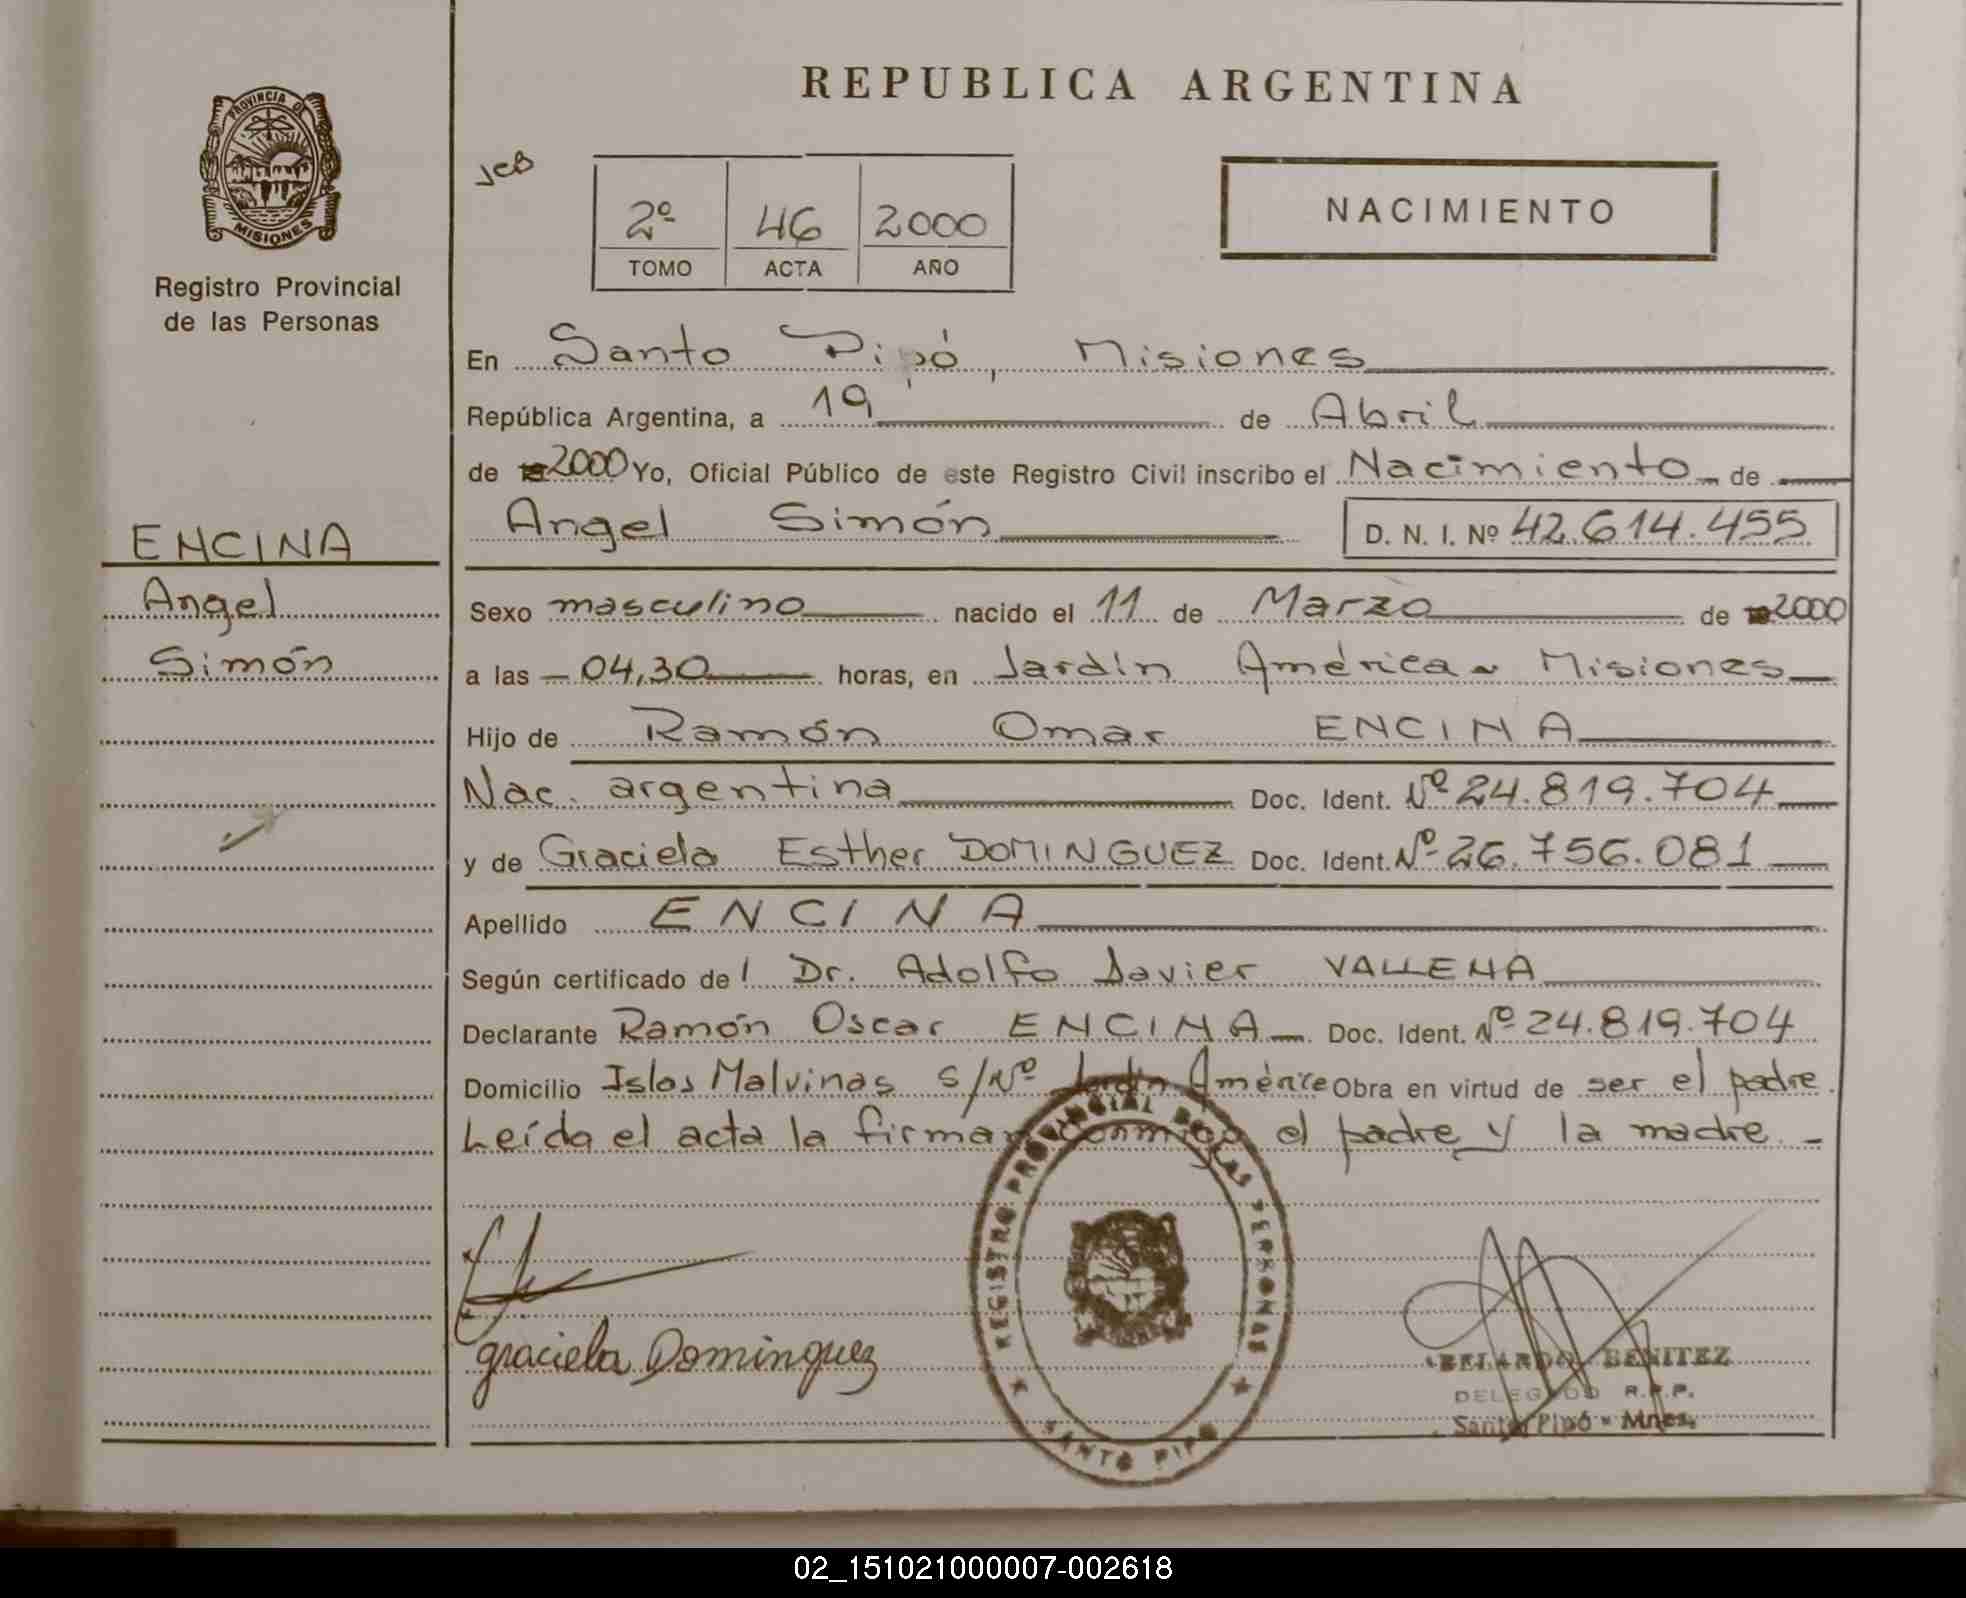 REPUBLICA ARGENTINA
PROVINCIA DE
MISIONES
Registro Provincial
de las Personas
2º 46 2000
TOMO ACTA AÑO
NACIMIENTO
En Santo Pipó, Misiones
República Argentina, a 19 de Abril
de 2000 Yo, Oficial Público de este Registro Civil inscribo el Nacimiento de
Angel Simón D. N. I. Nº 42.614.455
ENCINA
Angel
Simón
Sexo masculino nacido el 11 de Marzo de 2000
a las 04,30 horas, en Jardín América - Misiones
Hijo de Ramón Omar ENCINA
Nac. argentina Doc. Ident. Nº 24.819.704
y de Graciela Esther DOMINGUEZ Doc. Ident. Nº 26.756.081
Apellido ENCINA
Según certificado de l Dr. Adolfo Javier VALLENA
Declarante Ramón Oscar ENCINA Doc. Ident. Nº 24.819.704
Domicilio Islas Malvinas s/Nº Jardín América Obra en virtud de ser el padre.
Leída el acta la firman conmigo el padre y la madre. -
REGISTRO PROVINCIAL DE LAS PERSONAS
SANTO PIPO
graciela Dominguez
ABELARDO BENITEZ
DELEGADO R.P.P.
Santo Pipó - Mnes.
02_151021000007-002618